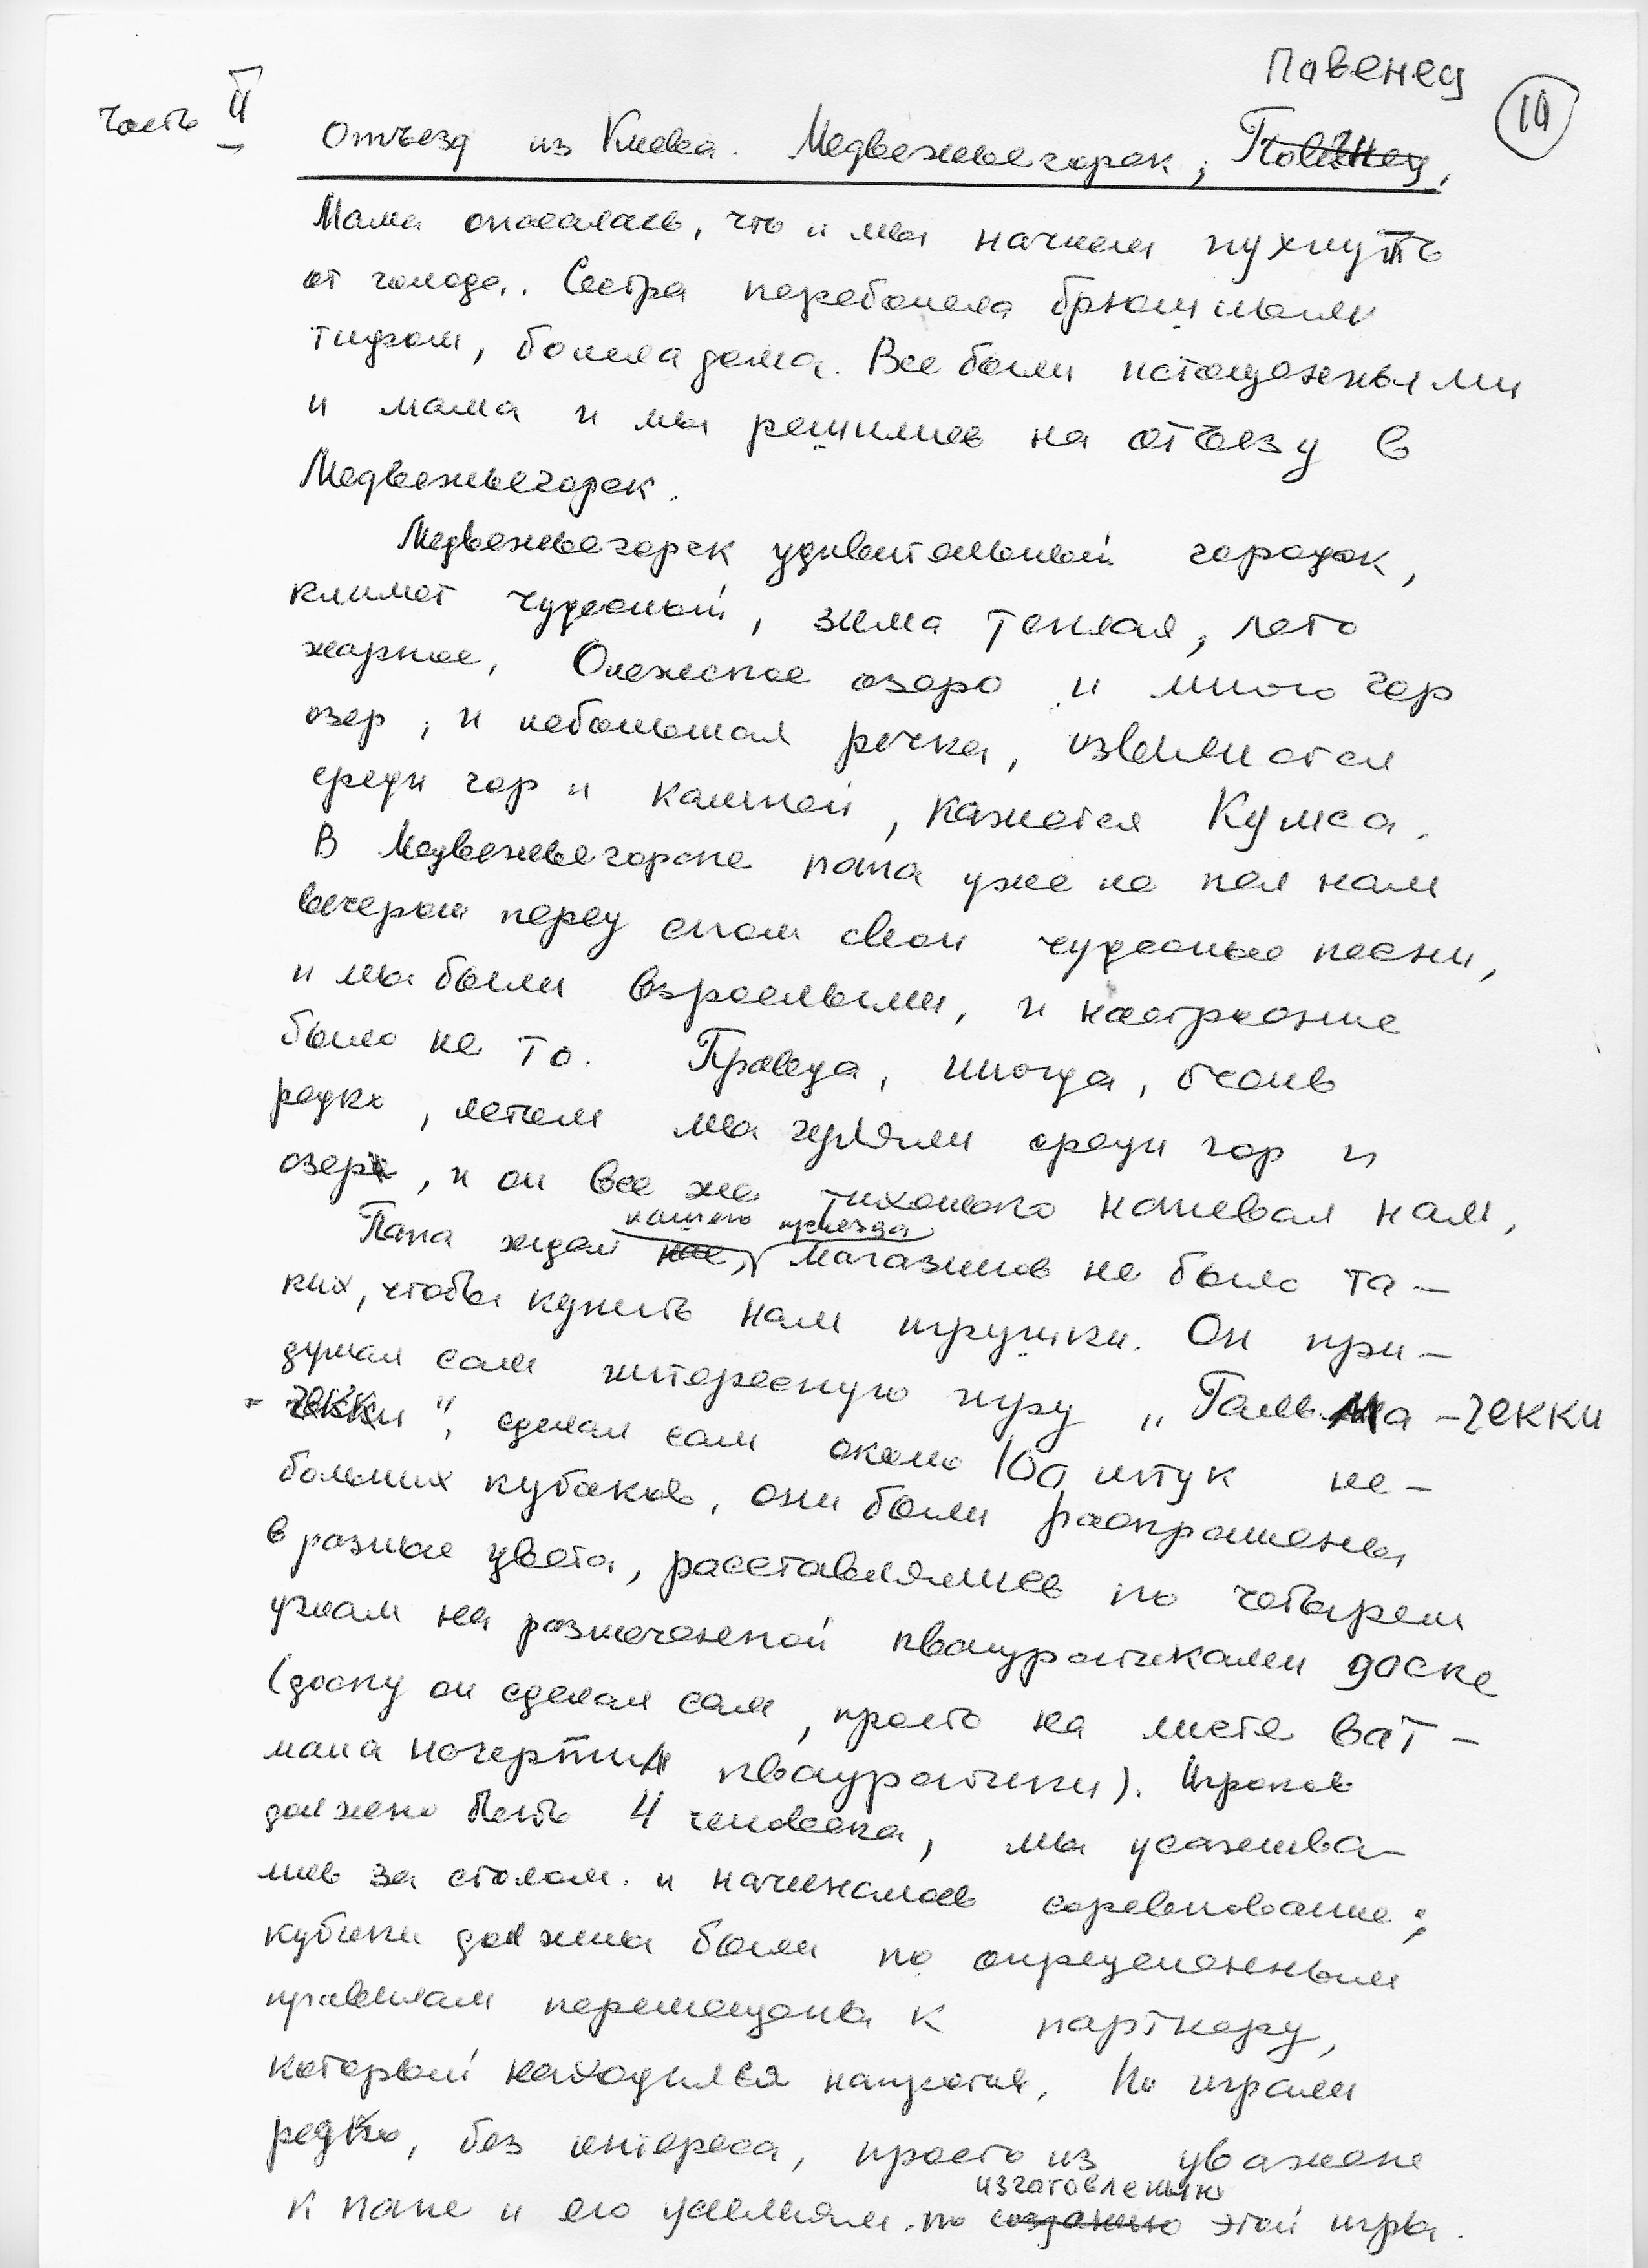 Павенец
10
Часть II
Отъезд из Киева. Медвежьегорск, Повенец,
Мама опасалась, что и мы начнем пухнуть
от голода. Сестра переболела брюшным
тифом, болела дома. Все были истощенными
и мама и мы решились на отъезд в
Медвежьегорск.
Медвежьегорск удивительный городок,
климат чудесный, зима теплая, лето
жаркое, Онежское озеро и много гор
озер, и небольшая речка, извивается
среди гор и камней, кажется Кумса.
В Медвежьегорске папа уже не пел нам
вечером перед сном свои чудесные песни,
и мы были взрослыми, и настроение
было не то. Правда, иногда, очень
редко, летом мы гуляли среди гор и
озер, и он все же тихонько напевал нам.
нашего приезда
Папа ждал нас, магазинов не было та-
ких, чтобы купить нам игрушки. Он при-
думал сам интересную игру „Гальма-чекки
-чекки", сделал сам около 100 штук не-
больших кубиков, они были раскрашены
в разные цвета, расставлялись по четырем
углам на размеченной квадратиками доске
(доску он сделал сам, просто на листе ват-
мана начертил квадратики). Игроков
должно быть 4 человека, мы усажива-
лись за столом и начиналось соревнование;
кубики должны были по определенным
правилам перемещены к партнеру,
который находился напротив. Но играли
редко, без интереса, просто из уважене
изготовлению
к папе и его усилиям по созданию этой игры.